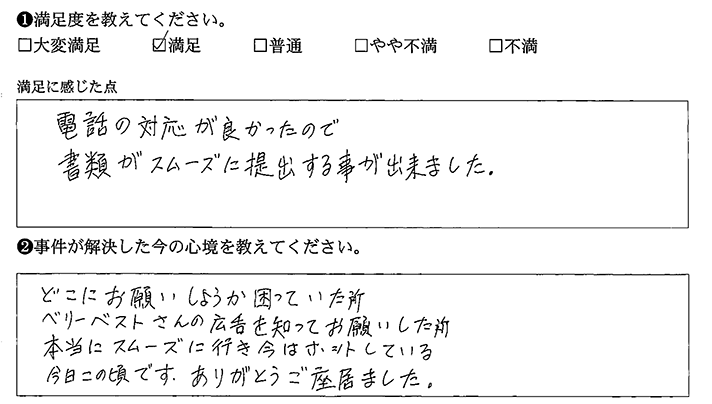 ❶満足度を教えてください。
□大変満足 ☑満足 □普通 □やや不満 □不満
満足に感じた点
電話の対応が良かったので
書類がスムーズに提出する事が出来ました。
❷事件が解決した今の心境を教えてください。
どこにお願いしようか困っていた所
ベリーベストさんの広告を知ってお願いした所
本当にスムーズに行き今はホットしている
今日この頃です。ありがとうご座居ました。